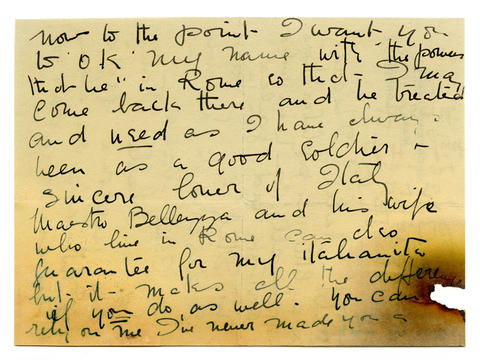 now to the point I want you
to OK my name with "the powers
that be" in Rome so that I may
come back there and be treated
and used as I have always
been as a good soldier &
sincere lover of Italy
Maestro Bellezza and his wife
who live in Rome can also
guarantee for my italianita
but it makes all the difference
if you do as well. You can
rely on me I've never made you a